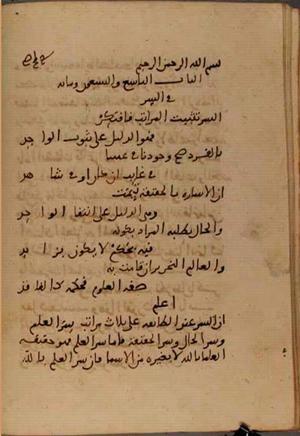 بسم الله الرحمن الرحيم
الباب التاسع والتسعون ومائة
في السر
السر تثبيت المراتب فافتكر
فهو الدليل على ثبوت الواحد
بالفرد صح وجودنا في عيننا
في غائب ان كان او في شاهد
ان الاشارة بالحقيقة
وهي الدليل على انتفا الواحد
والحال يطلبه المراد بحوله
فيه بحكم لا يكون بزايد
والعالم النحرير ان قامت به
صفة العلوم فحكمه كالفاقد
اعلم
ان السر عند الطايفة على ثلاث مراتب سر العلم
وسر الحال وسر الحقيقة فاما سر العلم فهو حقيقة
العلماء بالله لا بغيره من الاسما فان سر العلم بالله